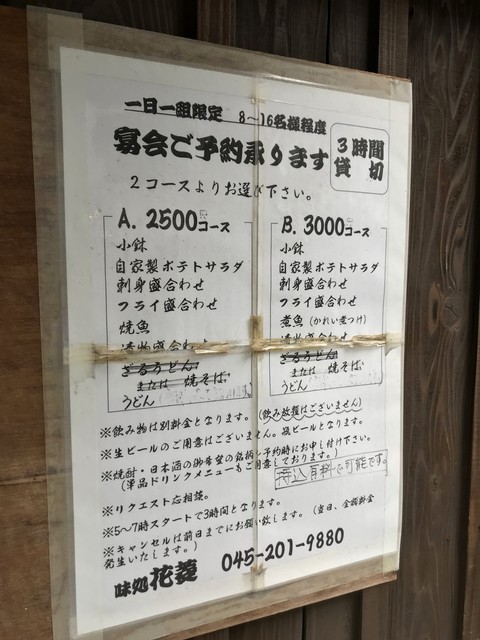 一日一組限定 8～16名様程度
宴会ご予約承ります
3時間
貸切
2コースよりお選び下さい。
A. 2500コース
小鉢
自家製ポテトサラダ
刺身盛合わせ
フライ盛合わせ
焼魚
漬物盛合わせ
ざるうどん
または 焼そば
うどん
B. 3000コース
小鉢
自家製ポテトサラダ
刺身盛合わせ
フライ盛合わせ
煮魚 (かれい煮つけ)
漬物盛合わせ
ざるうどん
または 焼そば
うどん
※飲み物は別料金となります。(飲み放題はございません)
※生ビールのご用意はございません。瓶ビールとなります。
※焼酎・日本酒の御希望の銘柄は予約時にお申し付け下さい。
(単品ドリンクメニューもご用意しております。)
持込有料で可能です。
※リクエスト応相談。
※5～7時スタートで3時間となります。
※キャンセルは前日までにお願い致します。(当日、全額料金
発生いたします。)
味処 花菱 045-201-9880